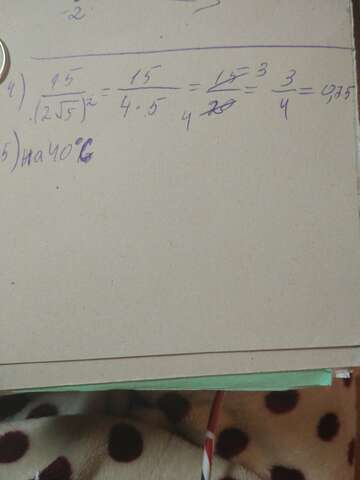 -2
4) 15/(2√5)² = 15/4·5 = 15 3/4 20 = 3/4 = 0,75
5) на 40°C